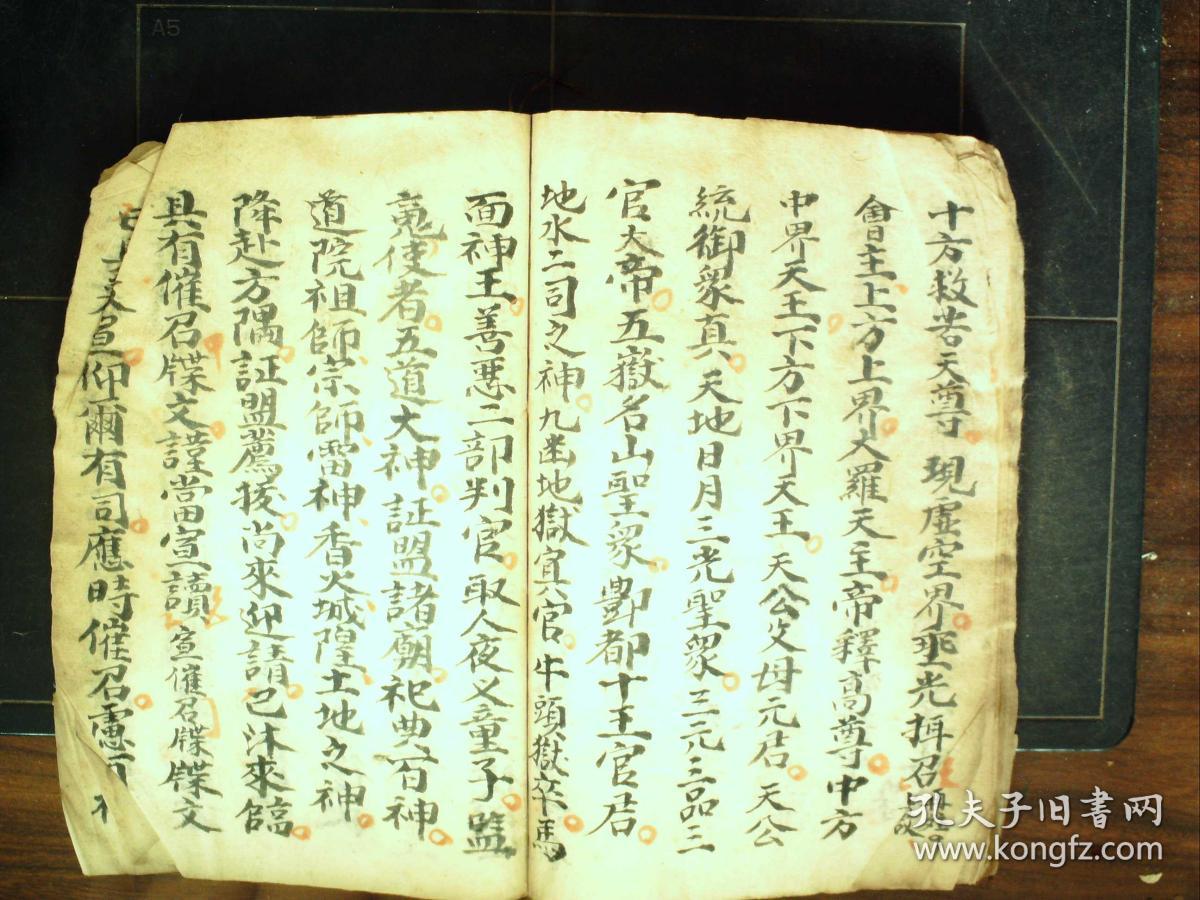 十方救苦天尊。現虛空界。垂光拜召
會主上方上界大羅天主帝釋高尊。中方
中界天王下方下界天王。天公父母元君。天公
統御眾真。天地日月三光聖眾。三元三品三
官大帝。五嶽名山聖眾。酆都十王官君
地水二司之神。九幽地獄冥官。牛頭獄卒馬
面神王。善惡二部判官。取人夜义童子。監
魂使者。五道大神。証盟諸廟。祀典百神
道院祖師宗師雷神。香火城隍土地之神。
降赴方隅。証盟薦拔。尚來迎請。已沐來臨。
具有催召牒文謹當宣讀 宣催召牒牒文
宣仰爾有司。應時催召。慮
孔夫子旧书网
www.kongfz.com
A5